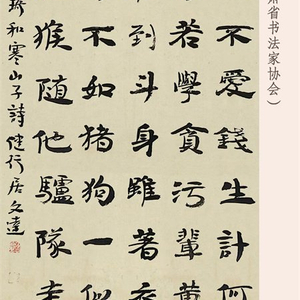 省书法家协会）
不愛錢生計何
若學貪污輩黄
到斗身雖著衣
不如猪狗一似
猴随他驢隊走
和寒山子詩 健行居文達